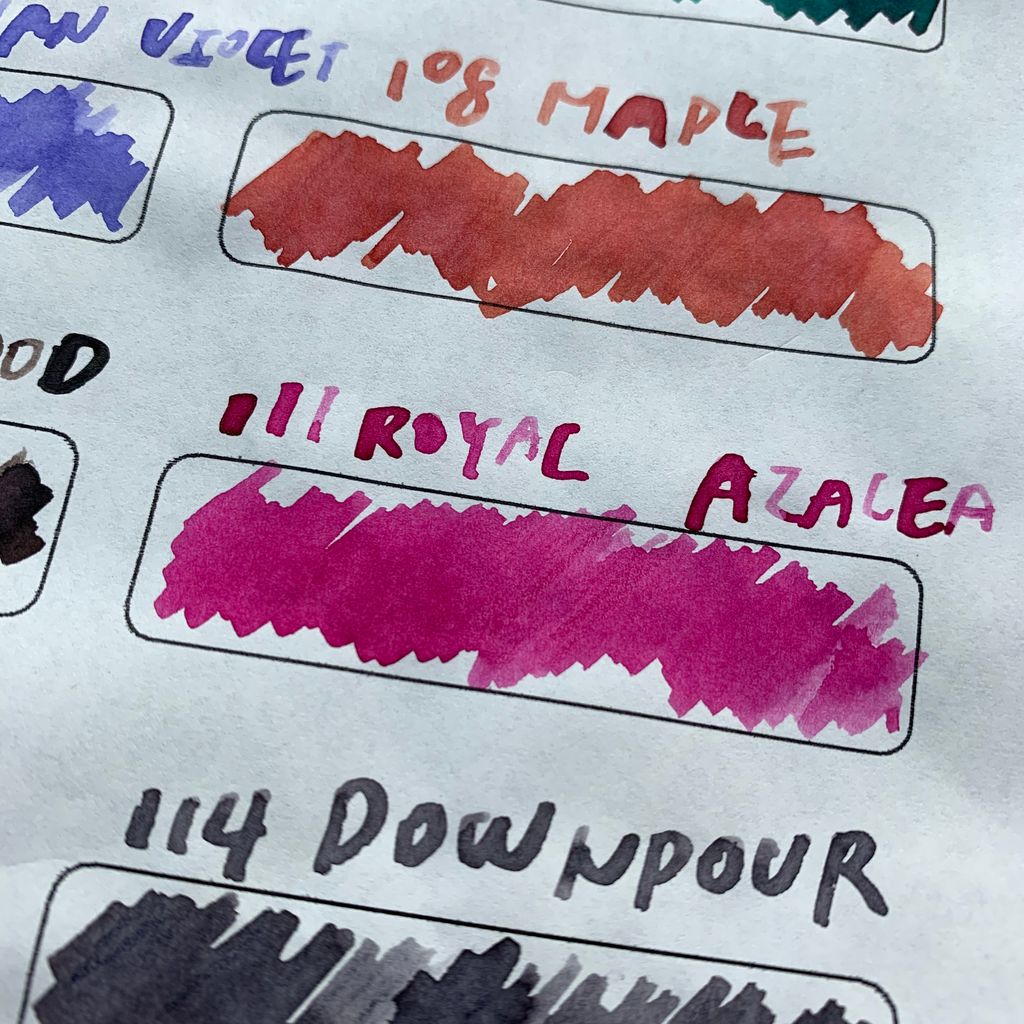 VIOLET
108 MAPLE
111 ROYAL AZALEA
114 DOWNPOUR